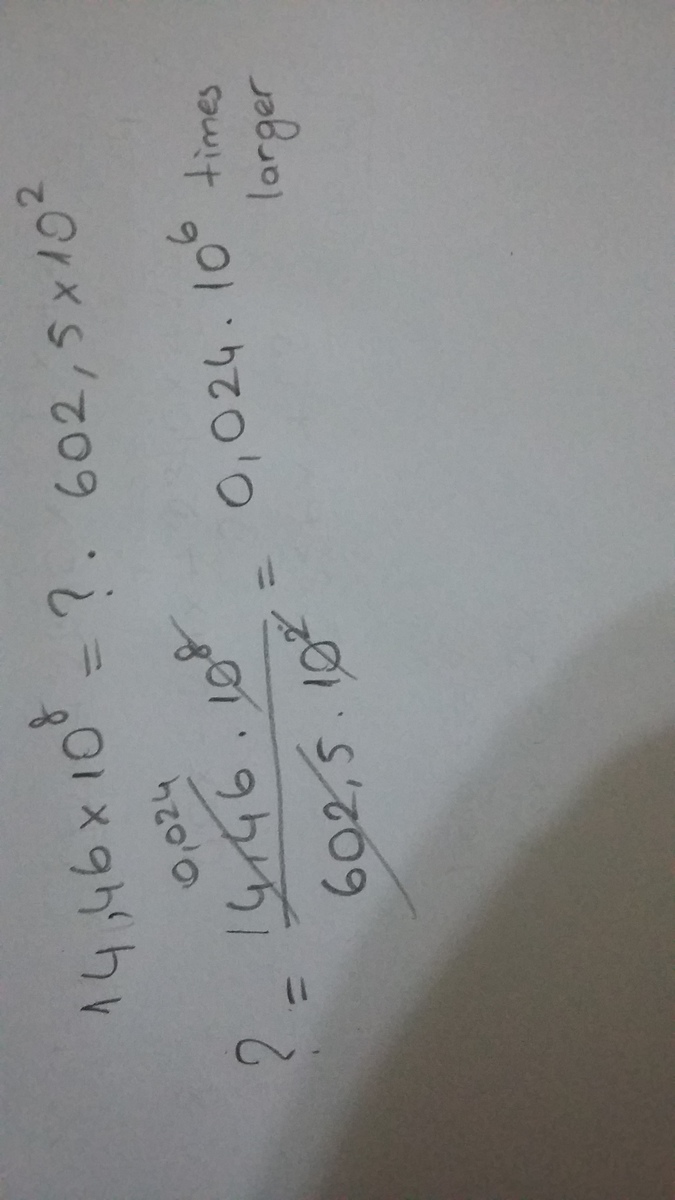 14,46 x 10⁸ = ? . 602,5 x 10²
0,024
? = 14,46 . 10⁸ / 602,5 . 10² = 0,024 . 10⁶ times
larger